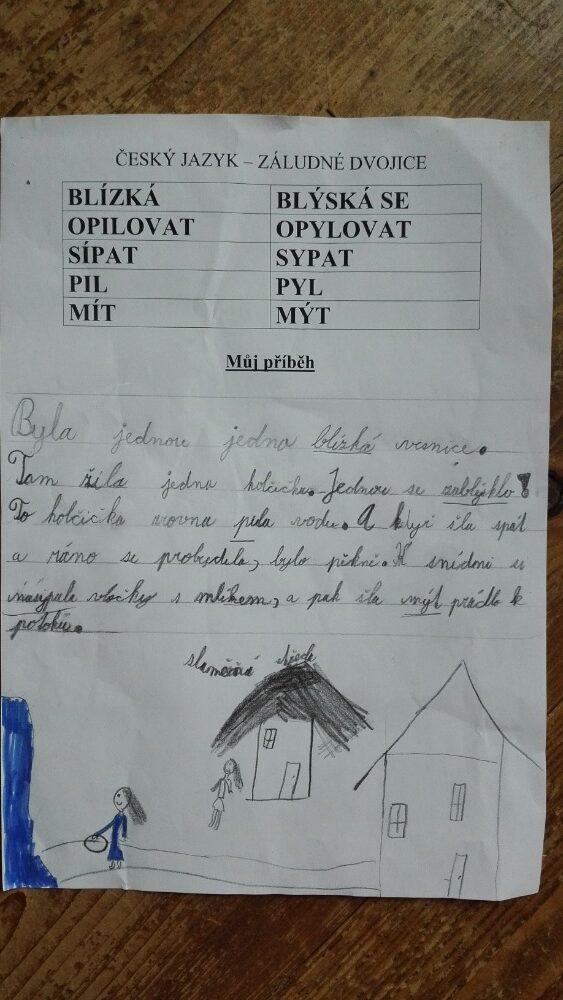 ČESKÝ JAZYK – ZÁLUDNÉ DVOJICE
BLÍZKÁ BLÝSKÁ SE
OPILOVAT OPYLOVAT
SÍPAT SYPAT
PIL PYL
MÍT MÝT
Můj příběh
Byla jednou jedna blízká vesnice.
Tam žila jedna holčička. Jednou se zablýsklo!
To holčička zrovna pila vodu. A když šla spát
a ráno se probudila, bylo pěkně. K snídani si
nasypala vločky s mlékem, a pak šla mýt prádlo k
potoku.
slaměná